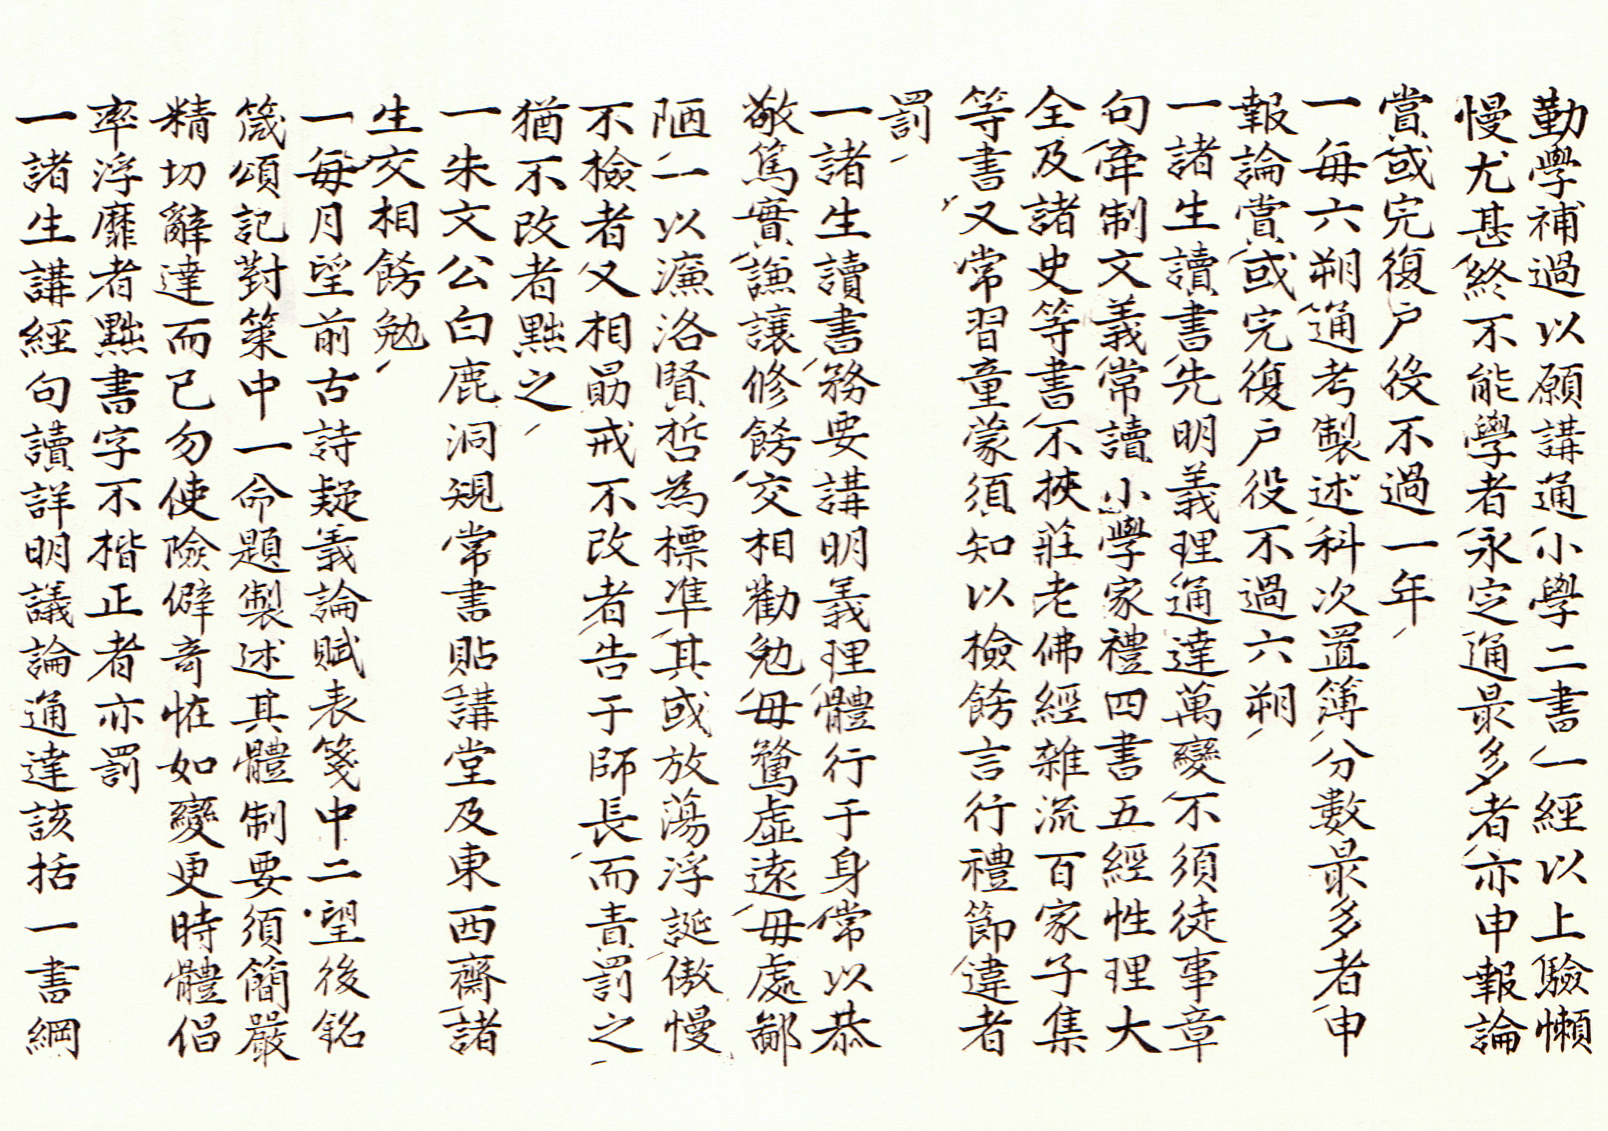 勤學補過以願講通小學二書一經以上驗懶
慢尤甚終不能學者永定通最多者亦申報論
賞或完復戶役不過一年
一每六朔通考製述科次置簿分數最多者申
報論賞或完復戶役不過六朔
一諸生讀書先明義理通達萬變不須徒事章
句牽制文義常讀小學家禮四書五經性理大
全及諸史等書不挾莊老佛經雜流百家子集
等書又常習童蒙須知以檢飭言行禮節違者
罰
一諸生讀書務要講明義理體行于身常以恭
敬篤實謙讓修飭交相勸勉毋騖虛遠毋處鄙
陋一以濂洛賢哲為標準其或放蕩浮誕傲慢
不檢者又相勗戒不改者告于師長而責罰之
猶不改者黜之
一朱文公白鹿洞規常書貼講堂及東西齋諸
生交相飭勉
一每月望前古詩疑義論賦表箋中二望後銘
箴頌記對策中一命題製述其體制要須簡嚴
精切辭達而已勿使險僻奇怪如變更時體倡
率浮靡者黜書字不楷正者亦罰
一諸生講經句讀詳明議論通達該括一書綱